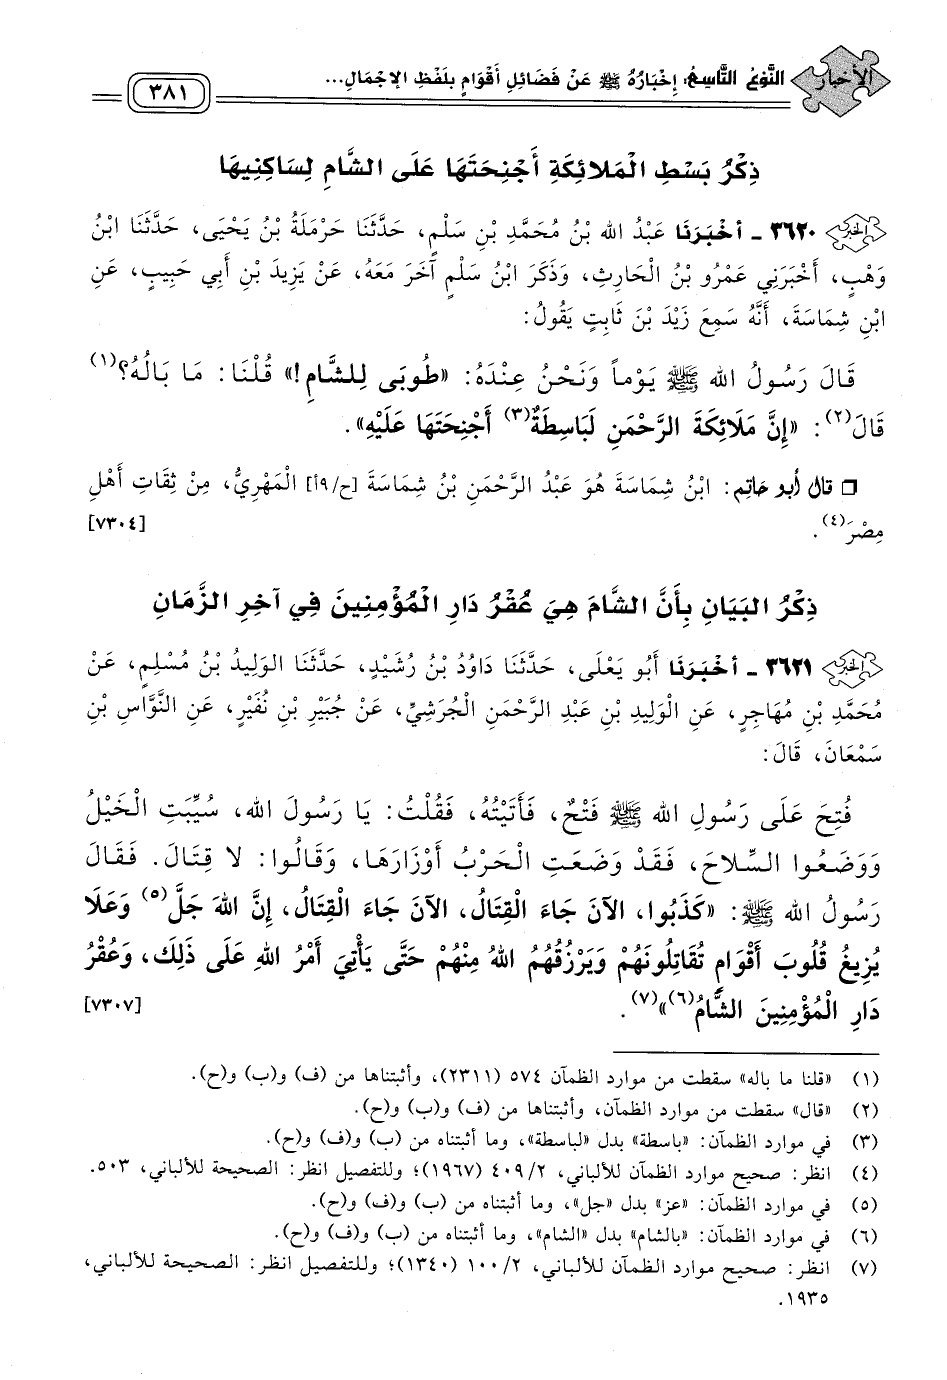 الأخبار
النَّوْعُ التَّاسِعُ: إِخْبَارُهُ ﷺ عَنْ فَضَائِلِ أَقْوَامٍ بِلَفْظِ الإِجْمَالِ...
٣٨١
ذِكْرُ بَسْطِ الْمَلائِكَةِ أَجْنِحَتَهَا عَلَى الشَّامِ لِسَاكِنِيهَا
الخبر ٣٦٢٠ - أَخْبَرَنَا عَبْدُ اللهِ بْنُ مُحَمَّدِ بْنِ سَلْمٍ، حَدَّثَنَا حَرْمَلَةُ بْنُ يَحْيَى، حَدَّثَنَا ابْنُ
وَهْبٍ، أَخْبَرَنِي عَمْرُو بْنُ الْحَارِثِ، وَذَكَرَ ابْنُ سَلْمٍ آخَرَ مَعَهُ، عَنْ يَزِيدَ بْنِ أَبِي حَبِيبٍ، عَنِ
ابْنِ شِمَاسَةَ، أَنَّهُ سَمِعَ زَيْدَ بْنَ ثَابِتٍ يَقُولُ:
قَالَ رَسُولُ اللهِ ﷺ يَوْماً وَنَحْنُ عِنْدَهُ: «طُوبَى لِلشَّامِ!» قُلْنَا: مَا بَالُهُ؟(١)
قَالَ(٢): «إِنَّ مَلَائِكَةَ الرَّحْمَنِ لَبَاسِطَةٌ(٣) أَجْنِحَتَهَا عَلَيْهِ».
❒ قال أبو حاتم: ابْنُ شِمَاسَةَ هُوَ عَبْدُ الرَّحْمَنِ بْنُ شِمَاسَةَ [ح/٩أ] الْمَهْرِيُّ، مِنْ ثِقَاتِ أَهْلِ
مِصْرَ(٤). [٧٣٠٤]
ذِكْرُ البَيَانِ بِأَنَّ الشَّامَ هِيَ عُقْرُ دَارِ الْمُؤْمِنِينَ فِي آخِرِ الزَّمَانِ
الخبر ٣٦٢١ - أَخْبَرَنَا أَبُو يَعْلَى، حَدَّثَنَا دَاوُدُ بْنُ رُشَيْدٍ، حَدَّثَنَا الوَلِيدُ بْنُ مُسْلِمٍ، عَنْ
مُحَمَّدِ بْنِ مُهَاجِرٍ، عَنِ الْوَلِيدِ بْنِ عَبْدِ الرَّحْمَنِ الْجُرَشِيِّ، عَنْ جُبَيْرِ بْنِ نُفَيْرٍ، عَنِ النَّوَّاسِ بْنِ
سَمْعَانَ، قَالَ:
فُتِحَ عَلَى رَسُولِ اللهِ ﷺ فَتْحٌ، فَأَتَيْتُهُ، فَقُلْتُ: يَا رَسُولَ اللهِ، سُيِّبَتِ الْخَيْلُ
وَوَضَعُوا السِّلاحَ، فَقَدْ وَضَعَتِ الْحَرْبُ أَوْزَارَهَا، وَقَالُوا: لا قِتَالَ. فَقَالَ
رَسُولُ اللهِ ﷺ: «كَذَبُوا، الآنَ جَاءَ الْقِتَالُ، الآنَ جَاءَ الْقِتَالُ، إِنَّ اللهَ جَلَّ(٥) وَعَلَا
يُزِيغُ قُلُوبَ أَقْوَامٍ تُقَاتِلُونَهُمْ وَيَرْزُقُهُمُ اللهُ مِنْهُمْ حَتَّى يَأْتِيَ أَمْرُ اللهِ عَلَى ذَلِكَ، وَعُقْرُ
دَارِ الْمُؤْمِنِينَ الشَّامُ(٦)»(٧). [٧٣٠٧]
(١) «قلنا ما باله» سقطت من موارد الظمآن ٥٧٤ (٢٣١١)، وأثبتناها من (ف) و(ب) و(ح).
(٢) «قال» سقطت من موارد الظمآن، وأثبتناها من (ف) و(ب) و(ح).
(٣) في موارد الظمآن: «باسطة» بدل «لباسطة»، وما أثبتناه من (ب) و(ف) و(ح).
(٤) انظر: صحيح موارد الظمآن للألباني، ٤٠٩/٢ (١٩٦٧)؛ وللتفصيل انظر: الصحيحة للألباني، ٥٠٣.
(٥) في موارد الظمآن: «عز» بدل «جل»، وما أثبتناه من (ب) و(ف) و(ح).
(٦) في موارد الظمآن: «بالشام» بدل «الشام»، وما أثبتناه من (ب) و(ف) و(ح).
(٧) انظر: صحيح موارد الظمآن للألباني، ١٠٠/٢ (١٣٤٠)؛ وللتفصيل انظر: الصحيحة للألباني،
١٩٣٥.